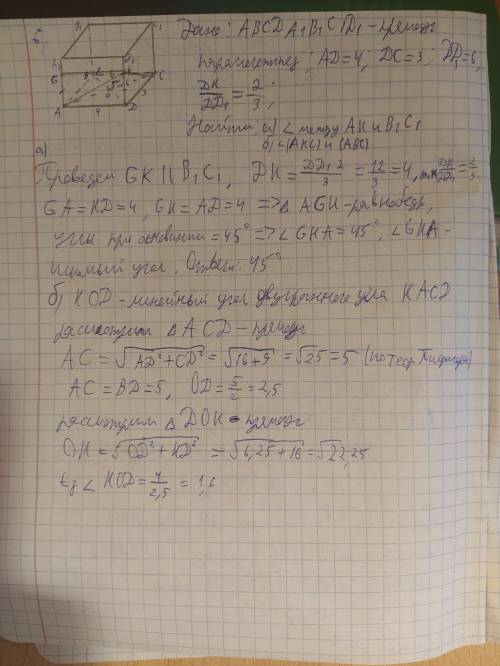 б.
Дано: ABCDA₁B₁C₁D₁ - прямоуг.
параллелепипед; AD=4; DC=3; DD₁=6;
DK/DD₁ = 2/3;
Найти а) ∠ между AK и B₁C₁
б) ∠(AKC) и (ABC)
а)
Проведем GK || B₁C₁, DK = DD₁·2/3 = 12/3 = 4, т.к. DK/DD₁ = 2/3
GA=KD=4, GK=AD=4 => △AGK - равнобедр,
углы при основании = 45° => ∠GKA = 45°, ∠GKA -
искомый угол. Ответ. 45°
б) KOD - линейный угол двугранного угла KACD
рассмотрим △ACD - прямоуг
AC = √AD²+CD² = √16+9 = √25 = 5 (по теор. Пифагора)
AC = BD = 5, OD = 5/2 = 2,5
рассмотрим △DOK - прямоуг
OK = √OD²+KD² = √6,25+16 = √22,25
tg ∠KOD = 4/2,5 = 1,6